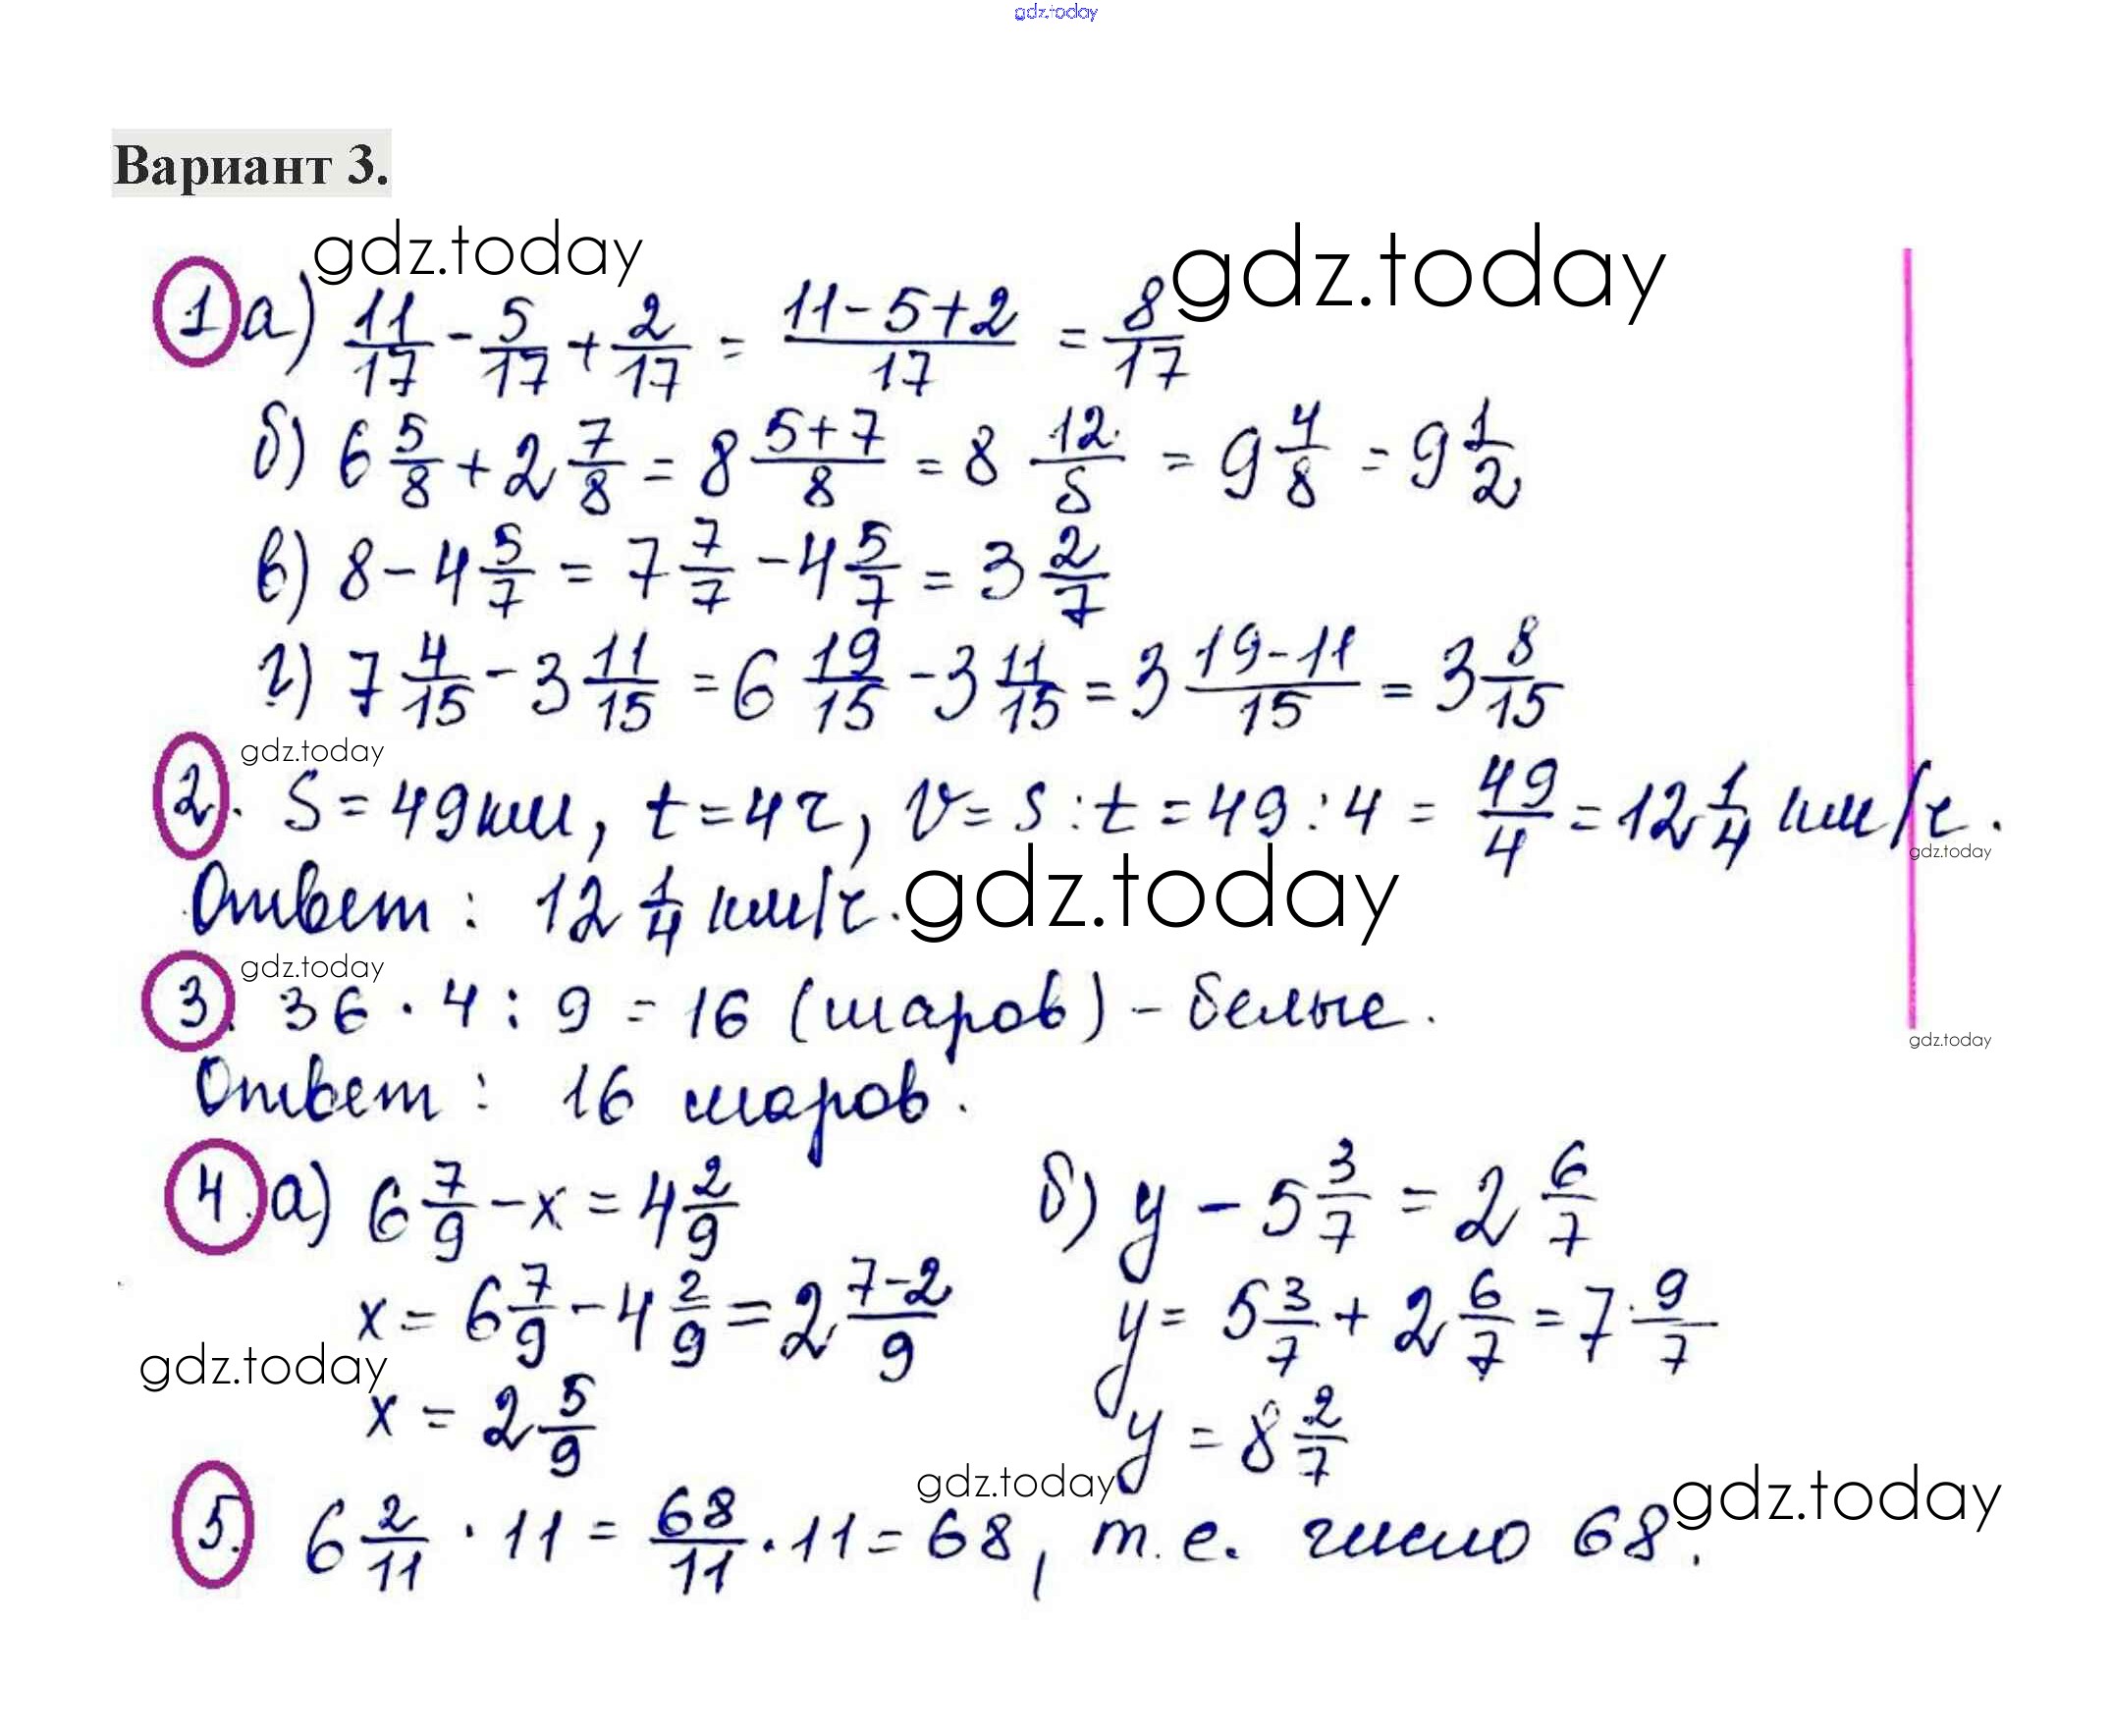 gdz.today
Вариант 3.
gdz.today gdz.today
1 а) 11/17 - 5/17 + 2/17 = (11-5+2)/17 = 8/17
б) 6 5/8 + 2 7/8 = 8 (5+7)/8 = 8 12/8 = 9 4/8 = 9 1/2
в) 8 - 4 5/7 = 7 7/7 - 4 5/7 = 3 2/7
г) 7 4/15 - 3 11/15 = 6 19/15 - 3 11/15 = 3 (19-11)/15 = 3 8/15
gdz.today
2. S = 49 км, t = 4 ч, V = s : t = 49 : 4 = 49/4 = 12 1/4 км/ч.
gdz.today
Ответ: 12 1/4 км/ч. gdz.today
gdz.today
3. 36 · 4 : 9 = 16 (шаров) - белые.
gdz.today
Ответ: 16 шаров.
4. а) 6 7/9 - x = 4 2/9 б) y - 5 3/7 = 2 6/7
x = 6 7/9 - 4 2/9 = 2 (7-2)/9 y = 5 3/7 + 2 6/7 = 7 9/7
gdz.today
x = 2 5/9 y = 8 2/7
gdz.today gdz.today
5. 6 2/11 · 11 = 68/11 · 11 = 68, т.е. число 68.